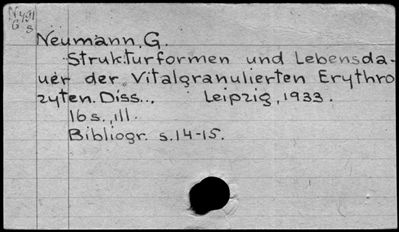 N491
6 s
Neumann, G.
Strukturformen und Lebensda-
uer der Vitalgranulierten Erythro
zyten. Diss... Leipzig, 1933.
16 s., ill.
Bibliogr. s. 14-15.